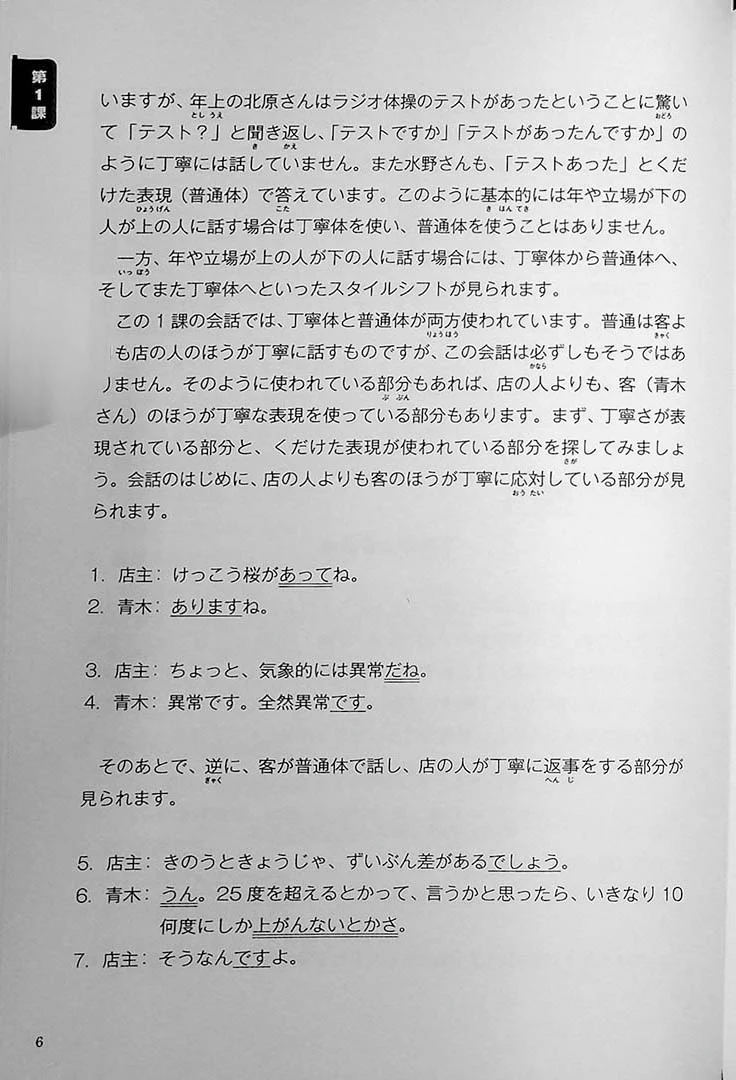 第1課
いますが、年上の北原さんはラジオ体操のテストがあったということに驚い
とし うえ
おどろ
て「テスト？」と聞き返し、「テストですか」「テストがあったんですか」の
き かえ
ように丁寧には話していません。また水野さんも、「テストあった」とくだ
けた表現（普通体）で答えています。このように基本的には年や立場が下の
ひょうげん
こた
き ほん てき
人が上の人に話す場合は丁寧体を使い、普通体を使うことはありません。
一方、年や立場が上の人が下の人に話す場合には、丁寧体から普通体へ、
いっ ぽう
そしてまた丁寧体へといったスタイルシフトが見られます。
この1課の会話では、丁寧体と普通体が両方使われています。普通は客よ
りょうほう
きゃく
も店の人のほうが丁寧に話すものですが、この会話は必ずしもそうではあ
かなら
りません。そのように使われている部分もあれば、店の人よりも、客（青木
ぶ ぶん
さん）のほうが丁寧な表現を使っている部分もあります。まず、丁寧さが表
現されている部分と、くだけた表現が使われている部分を探してみましょ
さが
う。会話のはじめに、店の人よりも客のほうが丁寧に応対している部分が見
おう たい
られます。
1. 店主：けっこう桜があってね。
2. 青木：ありますね。
3. 店主：ちょっと、気象的には異常だね。
4. 青木：異常です。全然異常です。
そのあとで、逆に、客が普通体で話し、店の人が丁寧に返事をする部分が
ぎゃく
へん じ
見られます。
5. 店主：きのうときょうじゃ、ずいぶん差があるでしょう。
6. 青木：うん。25度を超えるとかって、言うかと思ったら、いきなり10
何度にしか上がんないとかさ。
7. 店主：そうなんですよ。
6